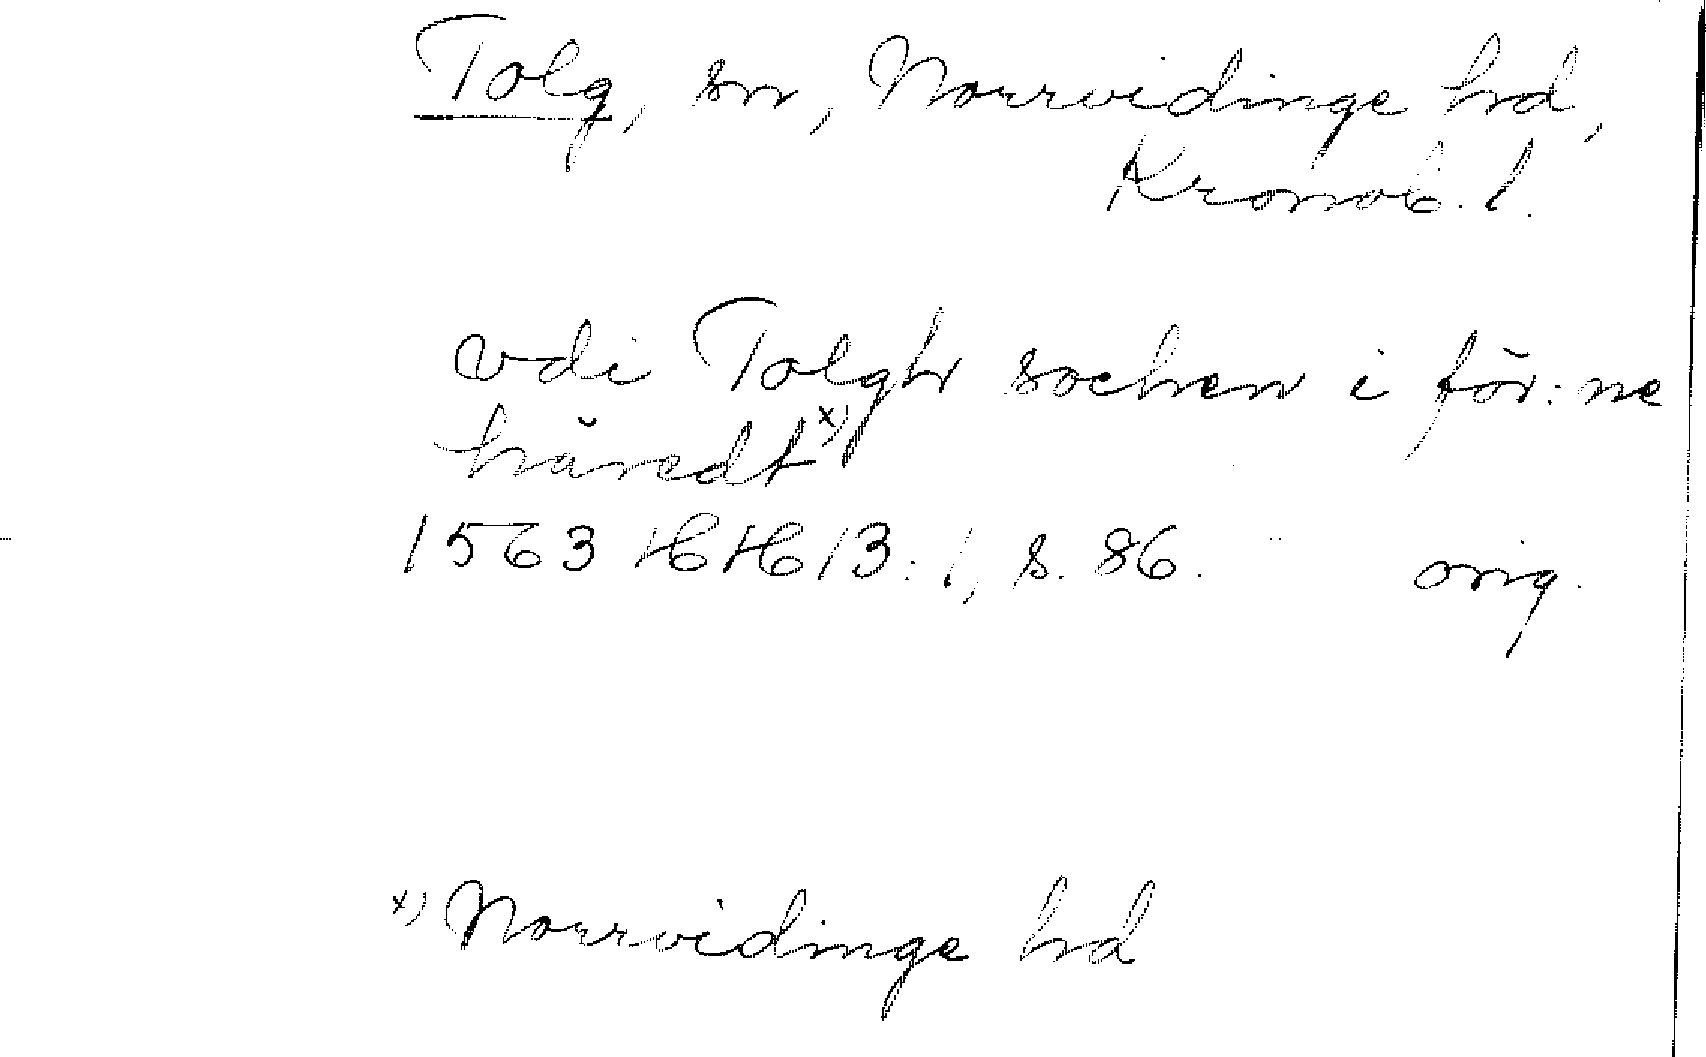 Tolg, sn, Norrvidinge hd,
Kronob. l.
vdi Tolgh sochen i för:ne
häredt x)
1563 HH 13:1, s. 86. orig.
x) Norrvidinge hd